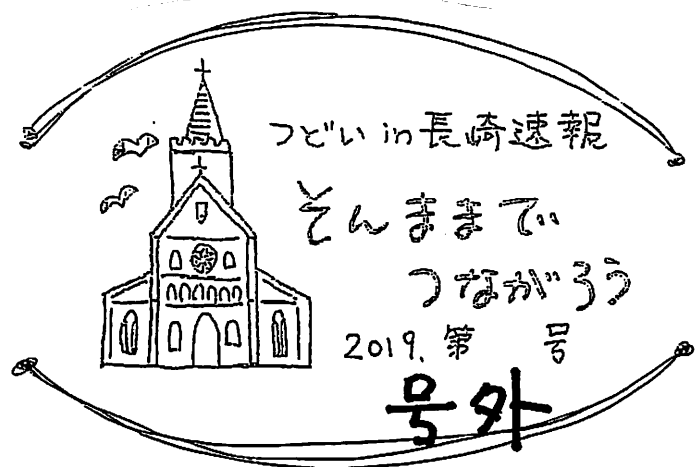 つどい in 長崎速報
そんままで
つながろう
2019. 第　　号
号外